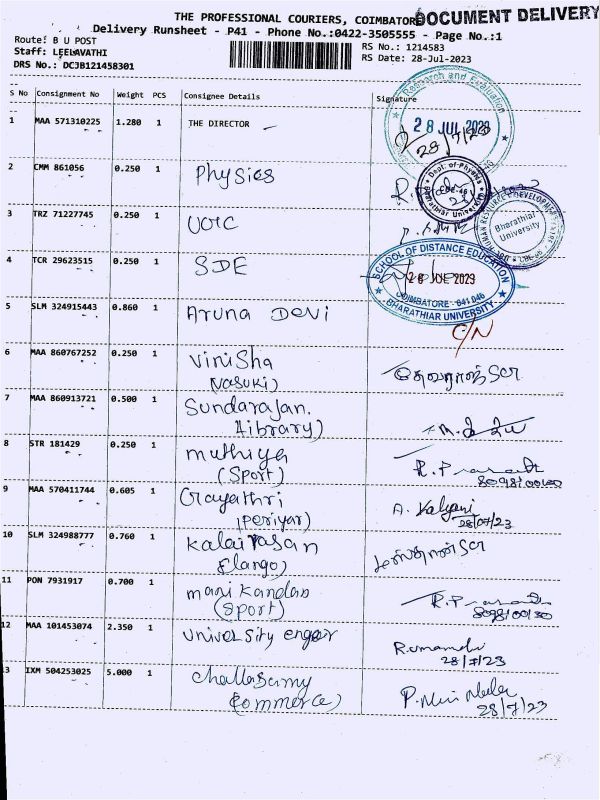 THE PROFESSIONAL COURIERS, COIMBATORE
DOCUMENT DELIVERY
Delivery Runsheet - P41 - Phone No.:0422-3505555 - Page No.:1
Route: B U POST
RS No.: 1214583
Staff: LEELAVATHI
RS Date: 28-Jul-2023
DRS No.: DCJB121458301
S No Consignment No Weight PCS Consignee Details Signature
1 MAA 571310225 1.280 1 THE DIRECTOR
Research and Evaluation
28 JUL 2023
28/7/23
2 CMM 861056 0.250 1 Physics
Dept. of Physics
Bharathiar University
3 TRZ 71227745 0.250 1 UOIC
HUMAN RESOURCE DEVELOPMENT CENTRE
Bharathiar University
4 TCR 29623515 0.250 1 SDE
SCHOOL OF DISTANCE EDUCATION
28 JUL 2023
COIMBATORE - 641 046
BHARATHIAR UNIVERSITY
5 SLM 324915443 0.860 1 Aruna Devi
6 MAA 860767252 0.250 1 Vinisha
(Vasuki)
7 MAA 860913721 0.500 1 Sundarajan.
(Library)
8 STR 181429 0.250 1 muthiya
(Sport)
9 MAA 570411744 0.605 1 Gayathri
(periyar)
A. Kalyani
28/07/23
10 SLM 324988777 0.760 1 Kalaivasan
(Elango)
11 PON 7931917 0.700 1 manikandan
(Sport)
12 MAA 101453074 2.350 1 University enger
28/7/23
13 IXM 504253025 5.000 1 Challasamy
(Commerce)
28/7/23